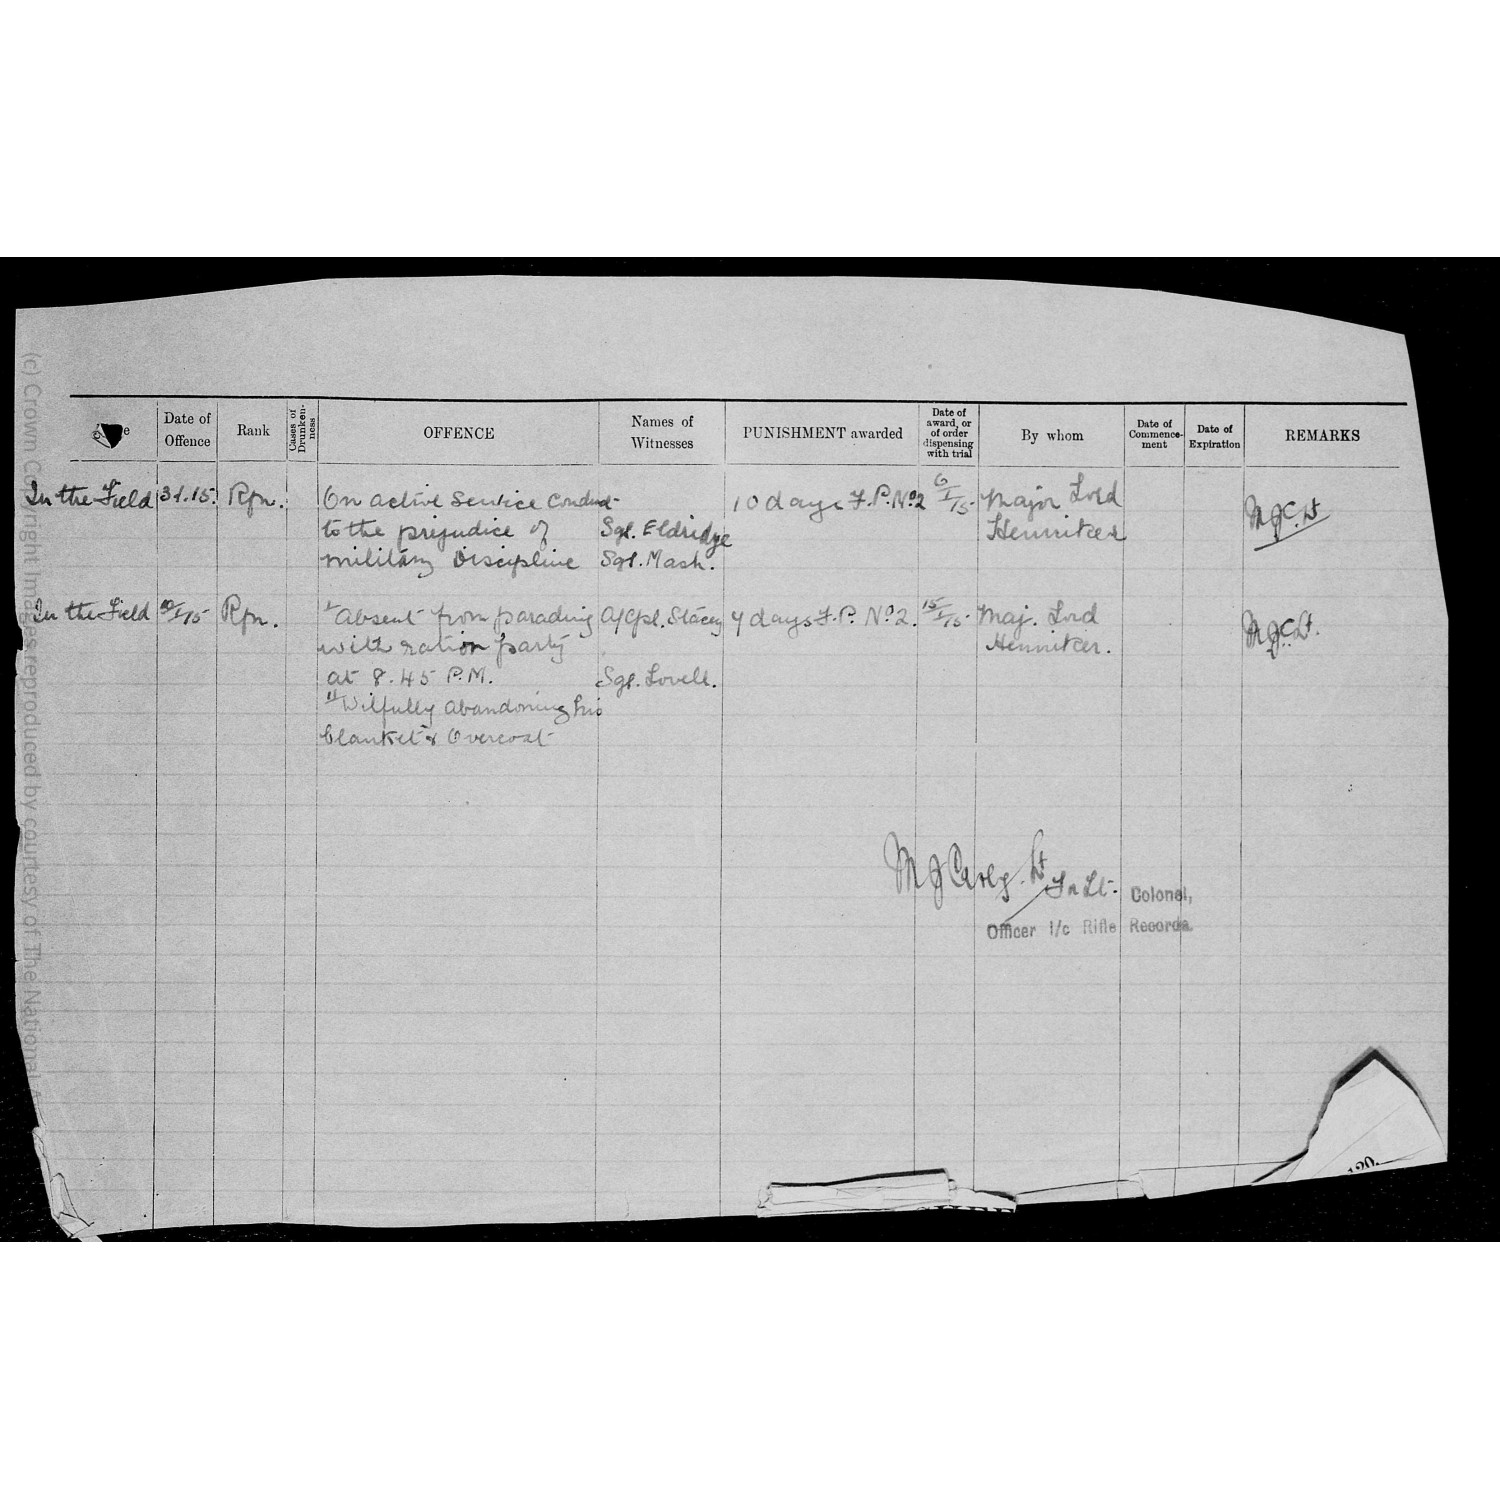 Date of Offence
Rank
Cases of Drunken-ness
OFFENCE
Names of Witnesses
PUNISHMENT awarded
Date of award, or of order dispensing with trial
By whom
Date of Commence-ment
Date of Expiration
REMARKS
In the Field 3.1.15. Rfn. On active service conduct 10 days F.P. No 2 6/1/15. Major Lord
to the prejudice of Sgt. Eldridge Henniker
military Discipline Sgt. Mash.
In the Field /1/15 Rfn. Absent from parading A/Cpl. Stacey 7 days F.P. No 2. 15/1/15. Maj. Lord
with ration party Henniker.
at 8.45 P.M. Sgt. Lovell.
Wilfully Abandoning his
blanket & Overcoat
Lt
Lt. Colonel,
Officer i/c Rifle Records.
(c) Crown Copyright Images reproduced by courtesy of The National